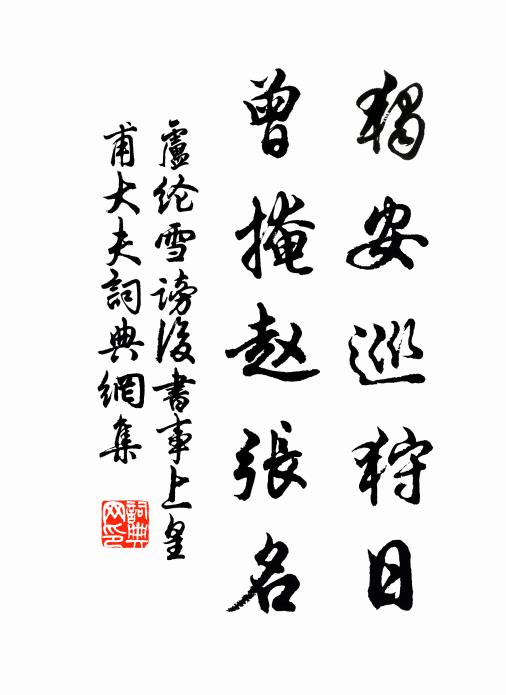 獨安巡狩日
曾掩赵張名
盧纶雪謗後書事上皇
甫大夫詞典網集
詞典网印